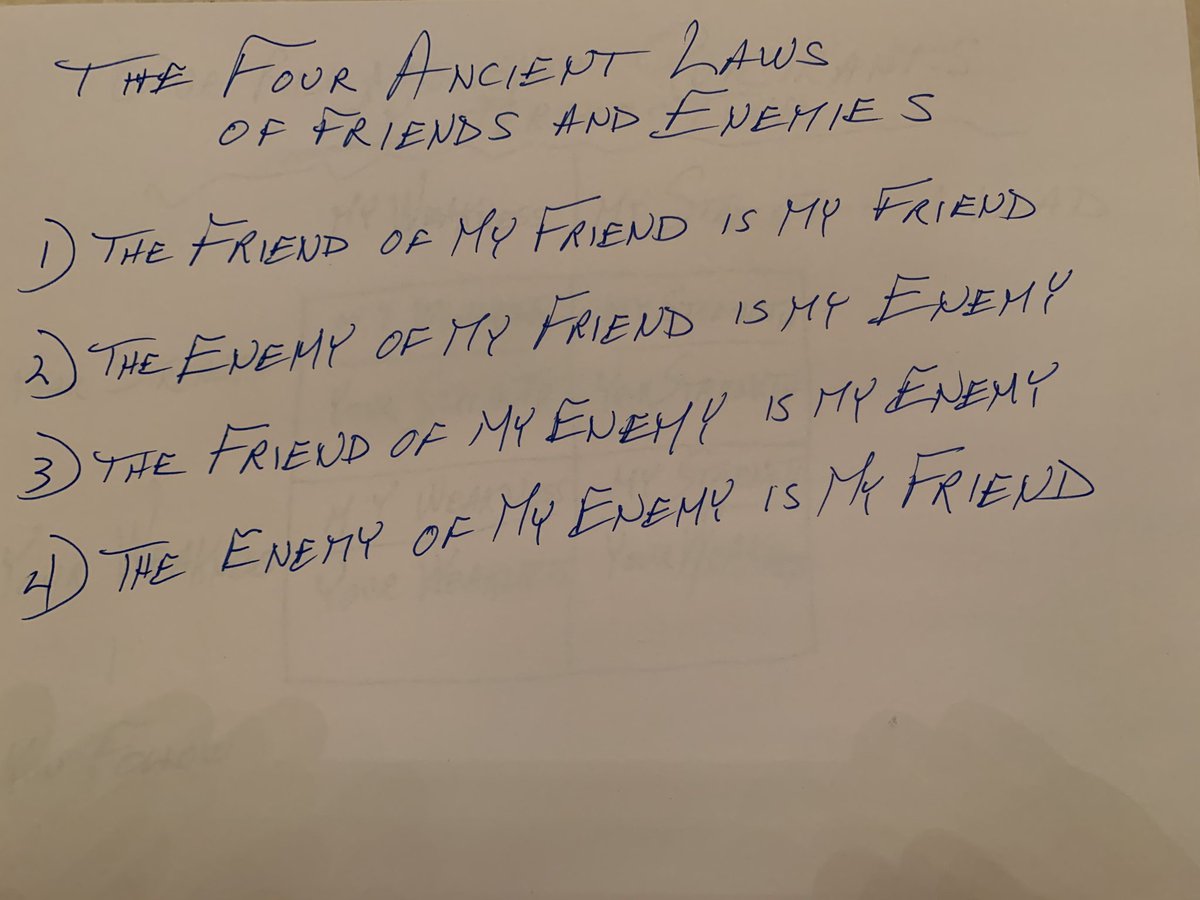 THE FOUR ANCIENT LAWS
OF FRIENDS AND ENEMIES
1) THE FRIEND OF MY FRIEND IS MY FRIEND
2) THE ENEMY OF MY FRIEND IS MY ENEMY
3) THE FRIEND OF MY ENEMY IS MY ENEMY
4) THE ENEMY OF MY ENEMY IS MY FRIEND